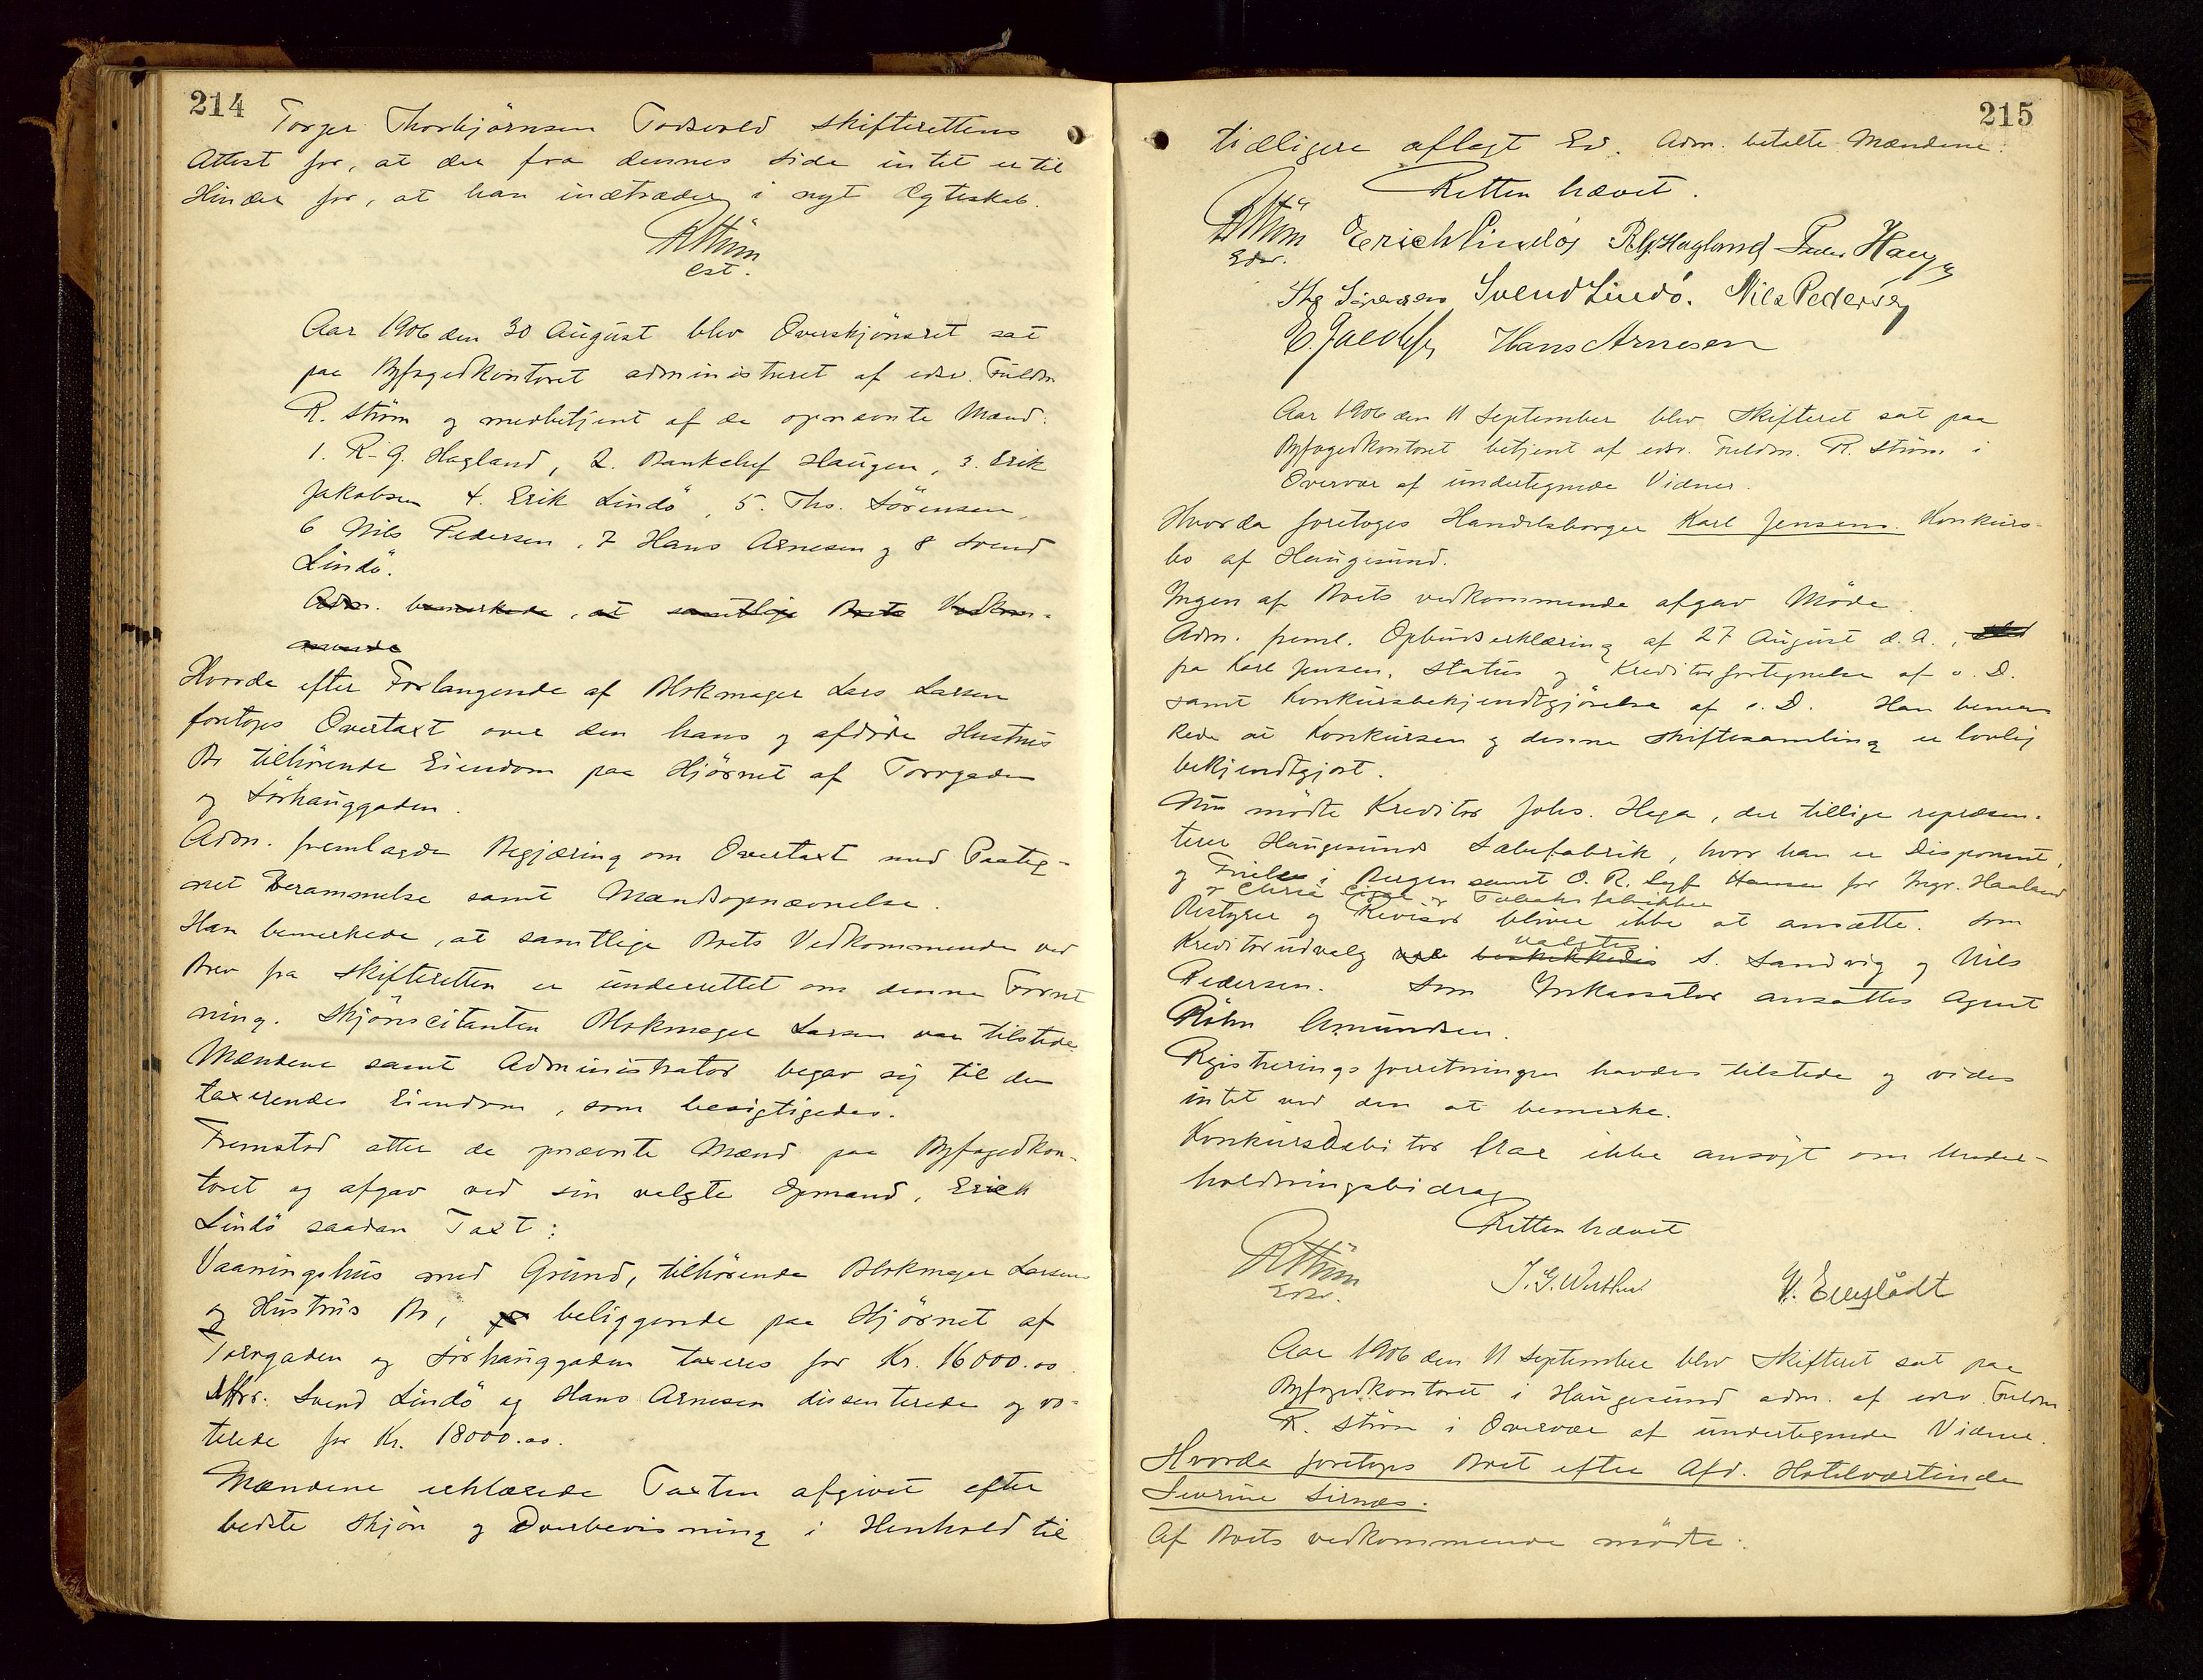 214
Torger Thorbjörnsen Todsvold Skifterettens
Attest for, at der fra dennes Side intet er til
Hinder for, at han indtræder i nyt Egteskab.
RStröm
cst.
Aar 1906 den 30 August blev Overskjönsret sat
paa Byfogedkontoret administreret af edsv. Fuldm
R. Ström og medbetjent af de opnævnte Mænd:
1. R. G. Hagland, 2. Bankchef Haugen, 3. Erik
Jakobsen 4. Erik Lindö, 5. Ths. Sörensen,
6 Nils Pedersen, 7 Hans Arnesen og 8 Svend
Lindö.
Adm. bemerkede, at samtlige Boets Vedkom-
mende
Hvorda efter Forlangende af Blokmager Lars Larsen
foretoges Overtaxt over den hans og afdöde Hustrus
Bo tilhörende Eiendom paa Hjörnet af Torvgaden
og Sörhauggaden.
Adm. fremlagde Begjæring om Overtaxt med Paateg-
net Berammelse samt Mændsopnævnelse.
Han bemerkede, at samtlige Boets Vedkommende ved
Brev fra Skifteretten er underrettet om denne Forret
ning. Skjönscitanten Blokmager Larsen var tilstede.
Mændene samt Administrator begav sig til den
taxerendes Eiendom, som besigtigedes.
Fremstod atter de opnævnte Mænd paa Byfogedkon-
toret og afgav ved sin valgte Opmand, Erick
Lindö saadan Taxt:
Vaaningshus med Grund, tilhörende Blokmager Larsens
og Hustrus Bo, beliggende paa Hjörnet af
Torvgaden og Sörhauggaden taxeres for Kr. 16000.00
Mrr. Svend Lindö og Hans Arnesen dissenterede og vo-
terede for Kr. 18000.00.
Mændene erklærede Taxten afgivet efter
bedste Skjön og Overbevisning i Henhold til
215
tidligere aflagt Ed. Adm. betalte Mændene.
Retten hævet.
RStröm Erich Lindös R.G. Hagland Peder Haugen
Edsv.
Ths Sörensen Svend Lindö. Nils Pedersen
E. Jacobsen Hans Arnesen
Aar 1906 den 11 September blev Skifteret sat paa
Byfogedkontoret betjent af edsv. Fuldm. R. Ström i
Overvær af undertegnede Vidner.
Hvorda foretoges Handelsborger Karl Jensens Konkurs-
bo af Haugesund.
Ingen af Boets vedkommende afgav Möde.
Adm. freml. Opbudserklæring af 27 August d. A.,
fra Karl Jensen, Status og Kreditorfortegnelse af s. D.
samt Konkursbekjendtgjörelse af s. D. Han bemer
kede at Konkursen og denne Skiftesamling er lovlig
bekjendtgjort.
Nu mödte Kreditor Johs. Hega, der tillige repræsen-
terer Haugesunds Sæbefabrik, hvor han er Disponent,
og Frieles i Bergen samt O. R. Lyf Hansen for Ingr. Haaland
og Chria Cigar & Tobaksfabrikker
Bestyrer og Revisor bliver ikke at ansætte. Som
valgtes
Kreditorudvalg beskikkedes S. Sandvig og Nils
Pedersen. Som Inkassator ansattes Agent
Röhn Amundsen.
Registreringsforretningen havdes tilstede og vides
intet ved den at bemerke.
Konkursdebitor har ikke ansögt om Under-
holdningsbidrag
Retten hævet
RStröm J. G. Werther
Edsv.
Aar 1906 den 11 September blev Skifteret sat paa
Byfogedkontoret i Haugesund adm. af edsv. Fuldm.
R. Ström i Overvær af undertegnede Vidner.
Hvorda foretoges Boet efter Afd. Hotelværtinde
Severine Sirnæs.
Af Boets vedkommende mödte: